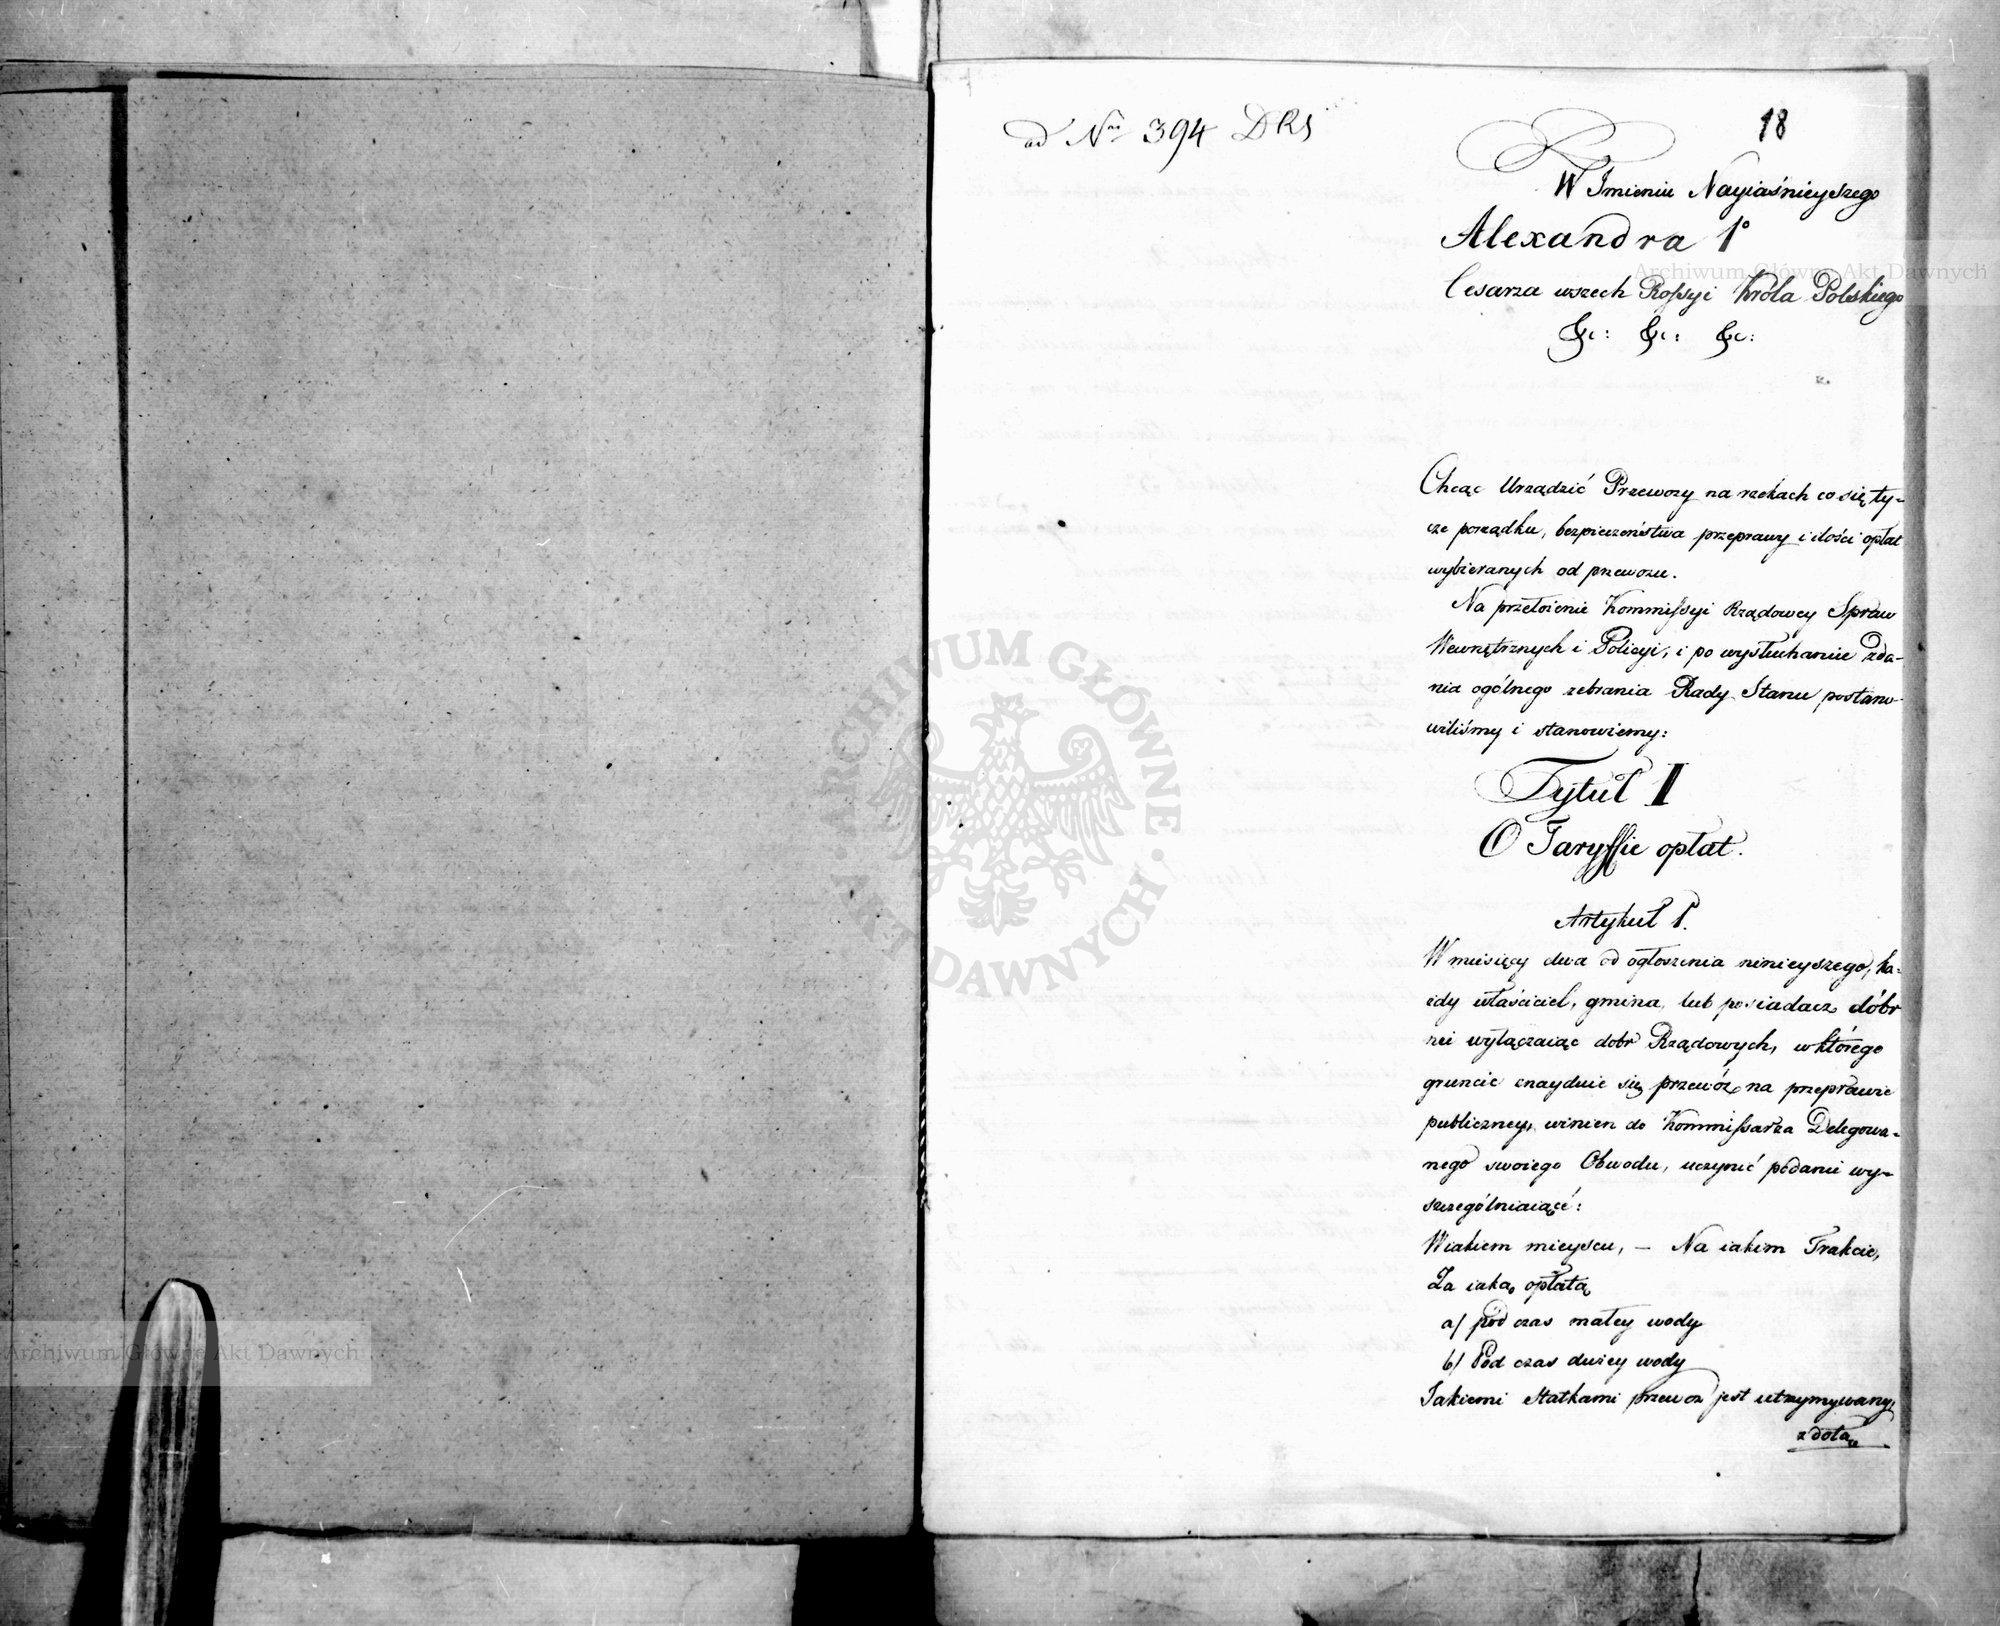 ad Nrn 394 DRS
18
W Imieniu Nayiaśnieyszego
Alexandra 1o
Cesarza wszech Rossyi Króla Polskiego
&c: &c: &c:
Chcąc Urządzić Przewozy na rzekach co się ty-
cze porządku, bezpieczeństwa przeprawy i ilości opłat
wybieranych od przewozu.
Na przełożenie Kommissyi Rządowey Spraw
Wewnętrznych i Policyi, i po wysłuchaniu zda-
nia ogólnego zebrania Rady Stanu postano-
wiliśmy i stanowiemy:
Tytuł I
O Taryffie opłat.
Artykuł 1.
W miesięcy dwa od ogłoszenia ninieyszego, ka-
żdy właściciel, gmina, lub posiadacz dóbr
nie wyłączaiąc dobr Rządowych, w którego
gruncie znayduie się przewóz na przeprawie
publiczney, winien do Kommissarza Delegowa-
nego swoiego Obwodu, uczynić podanie wy-
szczególniaiące:
W iakiem mieyscu, — Na iakim Trakcie,
Za iaką opłatą
a/ pod czas małey wody
b/ Pod czas dużey wody
Jakiemi Statkami przewoz jest utrzymywany,
z dołą
Archiwum Główne Akt Dawnych
Archiwum Główne Akt Dawnych
ARCHIWUM GŁÓWNE AKT DAWNYCH